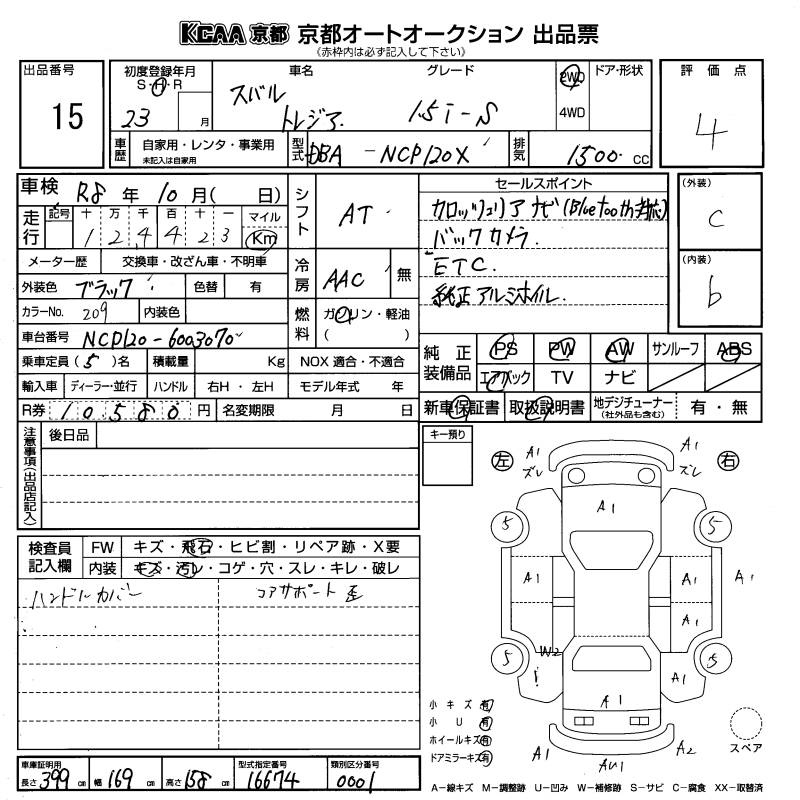 KCAA 京都 京都オートオークション 出品票
(赤枠内は必ず記入して下さい)
出品番号 15
初度登録年月 S・H・R 23 月
車名 スバル トレジア
グレード 1.5i-S
2WD 4WD
ドア・形状
評価点 4
車歴 自家用・レンタ・事業用 未記入は自家用
型式 DBA-NCP120X
排気 1500 cc
車検 R8年 10月( 日)
走行 記号 十 万 千 百 十 一 マイル Km
1 2 4 4 2 3
シフト AT
セールスポイント
カロッツェリアナビ(Bluetooth対応)
バックカメラ.
ETC.
純正アルミホイル.
(外装) C
(内装) b
メーター歴 交換車・改ざん車・不明車
冷房 AAC 無
外装色 ブラック 色替 有
カラーNo. 209 内装色
燃料 ガソリン・軽油 ( )
車台番号 NCP120-6003070
乗車定員 (5)名 積載量 Kg NOX適合・不適合
輸入車 ディーラー・並行 ハンドル 右H・左H モデル年式 年
R券 10580円 名変期限 月 日
純正装備品 PS PW AW サンルーフ ABS
エアバック TV ナビ
新車保証書 取扱説明書 地デジチューナー (社外品も含む) 有・無
注意事項(出品店記入) 後日品
キー預り
検査員記入欄 FW キズ・飛石・ヒビ割・リペア跡・X要
内装 キズ・汚レ・コゲ・穴・スレ・キレ・破レ
ハンドルカバー コアサポート歪
左 右
A1 ズレ A1 ズレ
A1
5 5
A1 A1 A1
A1
W2
5 5
A1
A1
A1 AU1 A2
小キズ 有
小U 有
ホイールキズ 有
ドアミラーキズ 有
スペア
車庫証明用 長さ 399 cm 幅 169 cm 高さ 158 cm
型式指定番号 16674
類別区分番号 0001
A-線キズ M-調整跡 U-凹み W-補修跡 S-サビ C-腐食 XX-取替済